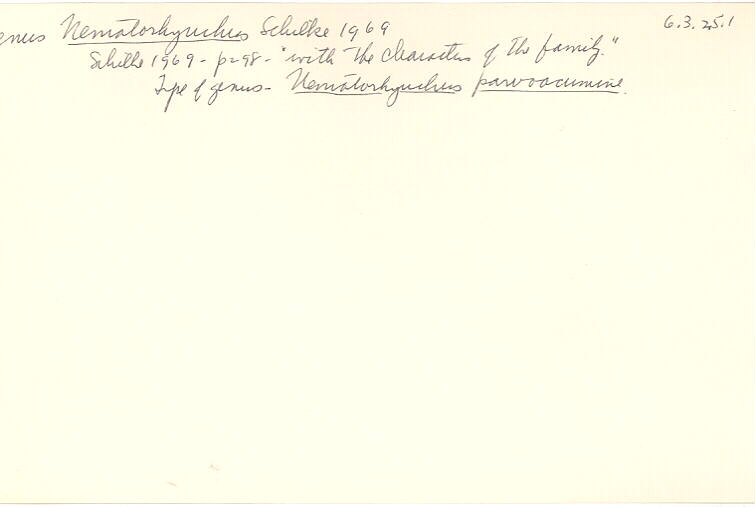 enus Nematorhynchus Schilke 1969 6.3.25.1
Schilke 1969 - p-98 - "with the characters of the family."
Type of genus - Nematorhynchus parvoacumine.